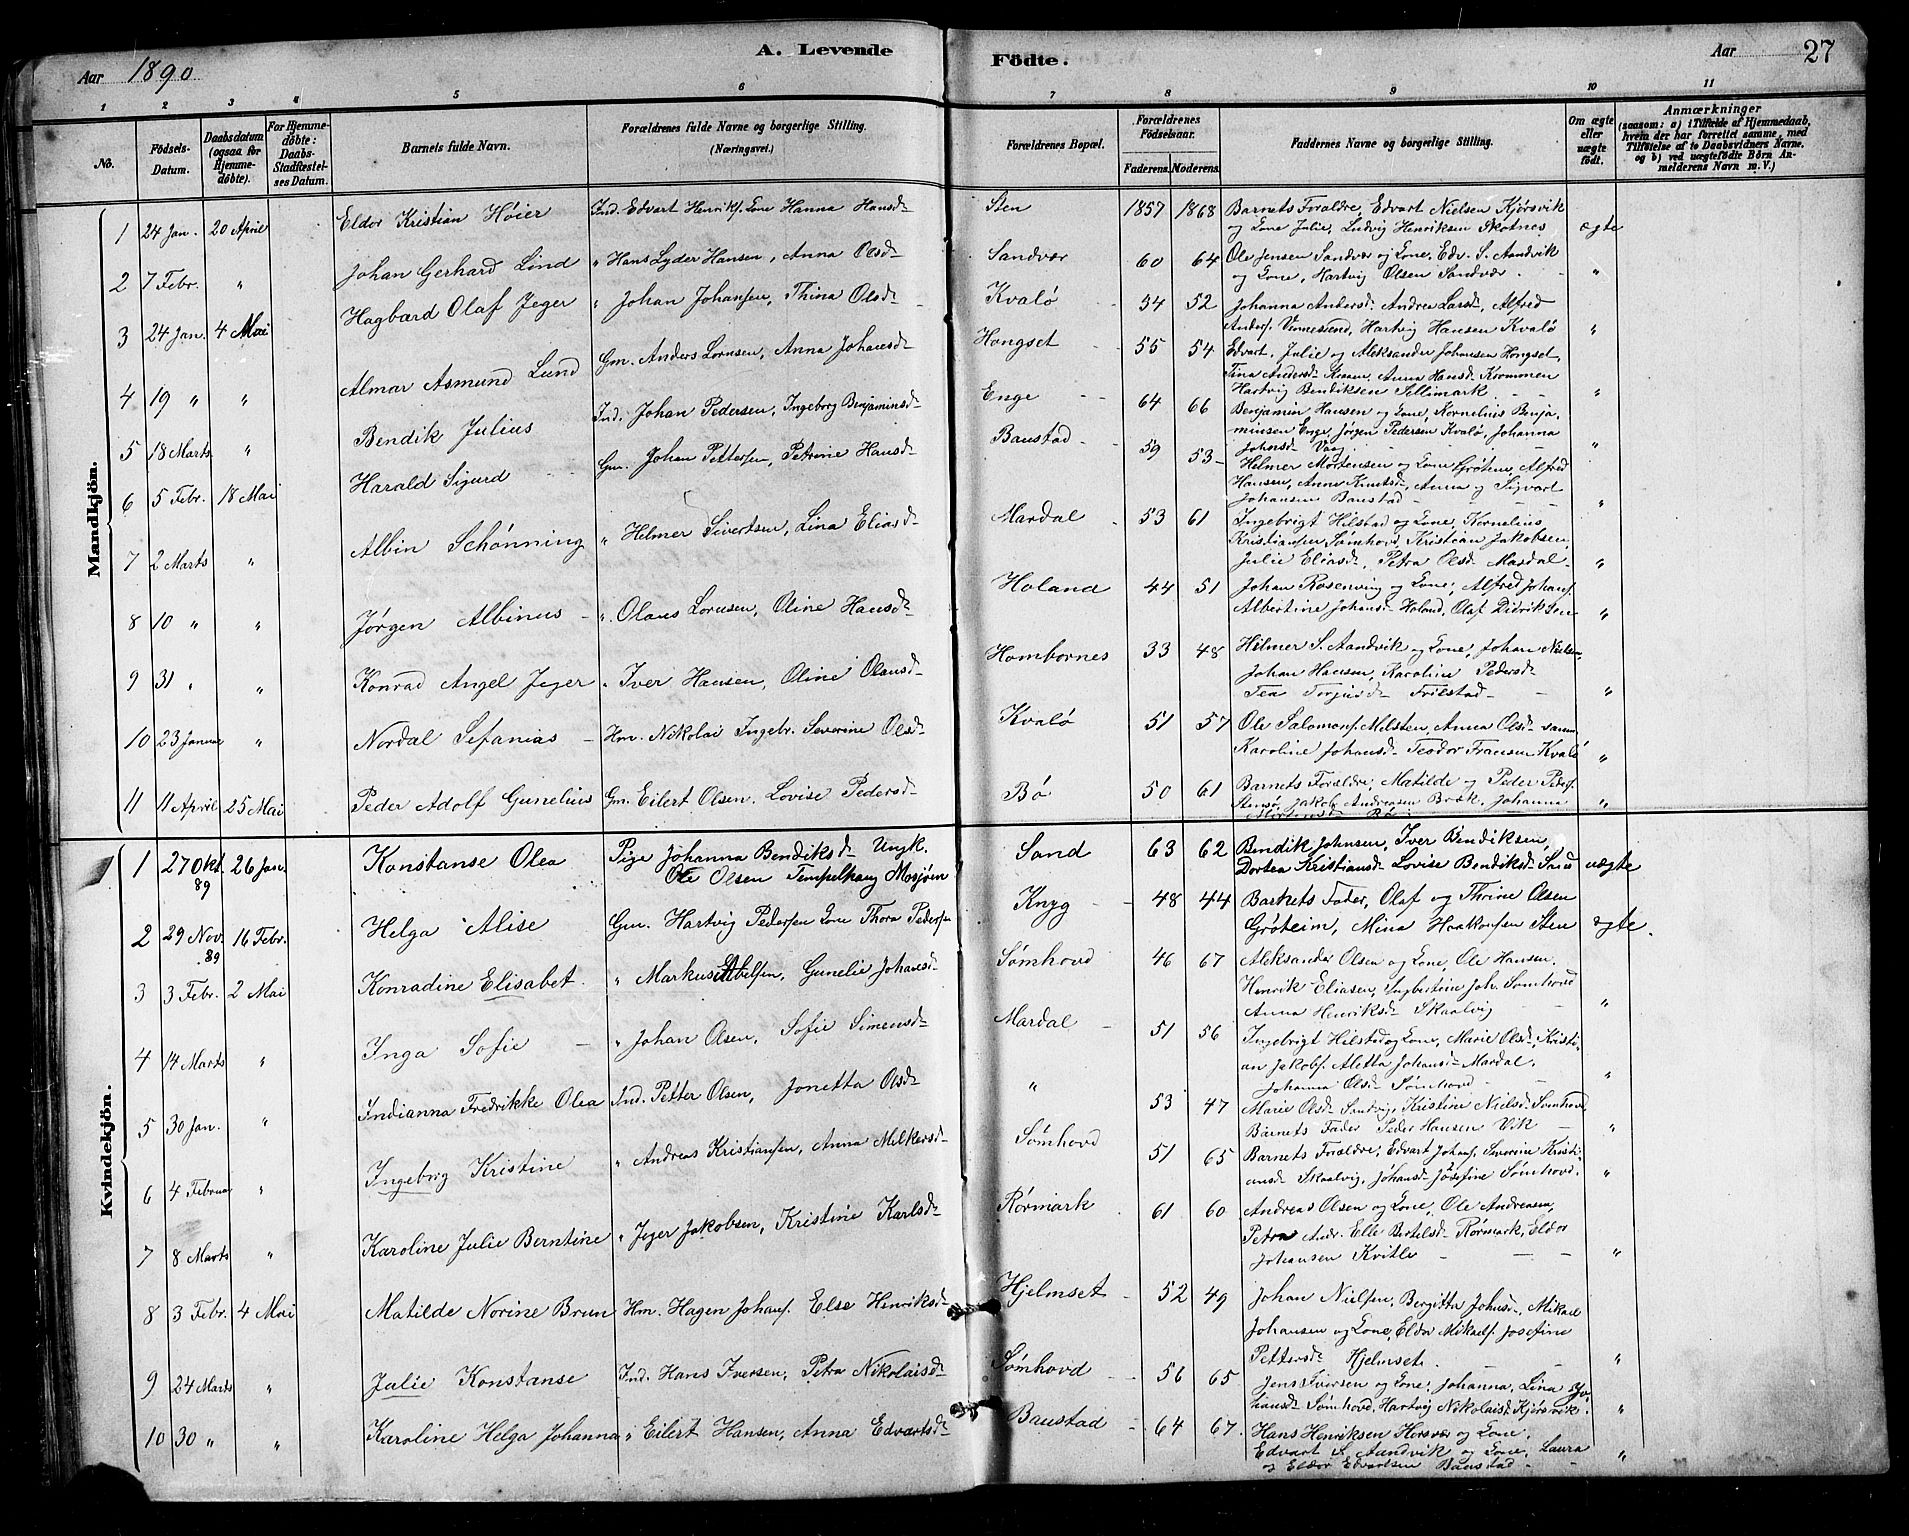 Aar 1890
A. Levende
Födte.
Aar
27
1 2 3 4 5 6 7 8 9 10 11
No.
Födsels-Datum.
Daabsdatum (ogsaa for Hjemme-döbte).
For Hjemme-döbte: Daabs-Stadfæstel-ses Datum.
Barnets fulde Navn.
Forældrenes fulde Navne og borgerlige Stilling.
(Næringsvei.)
Forældrenes Bopæl.
Forældrenes Födselsaar.
Faderens. Moderens.
Faddernes Navne og borgerlige Stilling.
Om ægte eller uægte födt.
Anmærkninger
(saasom: a) i Tilfælde af Hjemmedaab,
hvem der har forrettet samme, med
Tilföielse af to Daabsvidners Navne,
og b) ved uægtefödte Börn An-
melderens Navn m. V.)
Mandkjön.
1 24 Jan. 20 April Eldor Kristian Høier Ind. Edvart Henriks. Kone Hanna Hansd. Sten 1857 1868 Barnets Foraldre, Edvart Nielsen Kjørsvik
og Kone Julie, Ludvig Henriksen Skotnes ægte
2 7 Febr. " Johan Gerhard Lind " Hans Lyder Hansen, Anna Olsd. Sandvær 60 64 Ole Jensen Sandvær og Kone, Edv. S. Aandvik
og Kone, Hartvig Olsen Sandvær. "
3 24 Jan. 4 Mai Hagbard Olaf Jeger " Johan Johansen, Thina Olsd. Kvalø 54 52 Johanna Andersd. Andrea Larsd., Alfred
Anders. Vennesund, Hartvig Hansen Kvalø "
4 19 " " Almar Asmund Lund Gm. Anders Lornsen, Anna Johansd. Hongset 55 54 Edvart, Julie og Aleksander Johansen Hongset,
Tina Andersd. Stenen, Anna Hansd. Krommen
Hartvig Bendiksen Sellimark "
5 18 Marts " Bendik Julius Ind. Johan Pedersen, Ingeborg Benjaminsd. Enge 64 66 Benjamin Hansen og Kone, Kornelius Benja-
minsen Enge, Jørgen Pedersen Kvalø, Johanna
Johnsd. Vaag. "
6 5 Febr. 18 Mai Harald Sigurd Gm. Johan Pettersen, Petrine Hansd. Baustad 59 53 Helmer Mortensen og Kone Grøtem, Alfred
Hansen, Anne Knutsd., Anna og Sigvart
Johansen Baustad "
7 2 Marts " Albin Schønning " Helmer Sivertsen, Lina Eliasd. Mardal 53 61 Ingebrigt Hilstad og Kone, Kornelius
Kristiansen Sømhovd, Kristian Jakobsen,
Julie Eliasd., Petra Olsd. Mardal "
8 10 " " Jørgen Albinus " Olaus Lornsen, Oline Hansd. Holand 44 51 Johan Rosenving og Kone, Alfred Johans.
Albertine Johansd. Holand, Olaf Didriksen "
9 31 " " Konrad Angel Jeger " Iver Hansen, Oline Olausd. Hombornes 33 48 Helmer S. Aandvik og Kone, Johan Nielsen,
Johan Hansen, Karoline Pedersd.
Tea Torjusd. Frilstad "
10 23 Januar " Nordal Sefanias Hm. Nikolai Ingebr. Severine Olsd. Kvalø 51 57 Ole Salomons. Melsten, Anna Olsd. samm.
Karoline Johansd. Teodor Fransen Kvalø "
11 11 April 25 Mai Peder Adolf Gunelius Gm. Eilert Olsen. Lovise Pedersd. Bø 50 61 Barnets Forældre, Matilde og Peder Peders.
Stensø, Jakob Andreasen Bræk. Johanna
Bø. "
Kvindekjön.
1 27 Okt. 89 26 Jan. Konstanse Olea Pige Johanna Bendiksd. Ungk.
Ole Olsen Tempelhaug Mosjøen Sand 63 62 Bendik Johnsen, Iver Bendiksen,
Dortea Kristiansd. Lovise Bendiksd. Sand uægte
2 29 Nov. 89 16 Febr. Helga Alise Gm. Hartvig Pedersen Kone Thora Pedersen Knyg 48 44 Barnets Fader, Olaf og Thrine Olsen
Grøteim, Mina Haakonsen Sten ægte.
3 3 Febr. 2 Mai Konradine Elisabet. " Markus Abelsen, Gunelie Johansd. Sømhovd 46 67 Aleksander Olsen og Kone, Ole Hansen,
Henrik Eliasen, Ingbertine Joh. Sømhovd
Anna Henriksd. Skaalvig "
4 14 Marts " Inga Sofie " Johan Olsen, Sofie Simensd. Mardal 51 56 Ingebrigt Hilstad og Kone, Marie Olsd., Kristi-
an Jakobs. Aletta Johansd. Mardal.
Johanna Olsd. Sømhovd "
5 30 Jan. " Indianna Fredrikke Olea Ind. Petter Olsen, Jonetta Olsd. " 53 47 Marie Olsd. Sandvig, Kristine Nielsd. Sømhovd,
Barnets Fader Peder Hansen Vik "
6 4 Februar " Ingeborg Kristine " Andreas Kristiansen, Anna Milkersd. Sømhovd 51 65 Barnets Forældre, Edvart Johans. Severine Kristi-
ansd. Skaalvig, Johansd. Josefine Sømhovd. "
7 8 Marts " Karoline Julie Berntine " Jeger Jakobsen, Kristine Karlsd. Rørmark 61 60 Andreas Olsen og Kone, Ole Andreasen,
Petra Andr. Elle Bertelsd. Rørmark, Eldor
Johansen Kvitle "
8 3 Febr. 4 Mai Matilde Norine Brun Hm. Hagen Johans. Else Henriksd. Hjelmset 52 49 Johan Nielsen, Bergitta Johnsd., Mikael
Johansen og Kone, Eldor Mikaels. Josefine
Pettersd. Hjelmset. "
9 24 Marts " Julie Konstanse Ind. Hans Iversen, Petra Nikolaisd. Sømhovd 56 65 Jens Iversen og Kone, Johanna, Lina
Sømhovd, Hartvig Nikolaisd. Kjørsvik. "
10 30 " " Karoline Helga Johanna " Eilert Hansen, Anna Edvartsd. Baustad 64 67. Hans Henriksen Horsvær og Kone,
Edvart S. Aandvik og Kone, Laura
og Eldor Edvartsen Baustad "